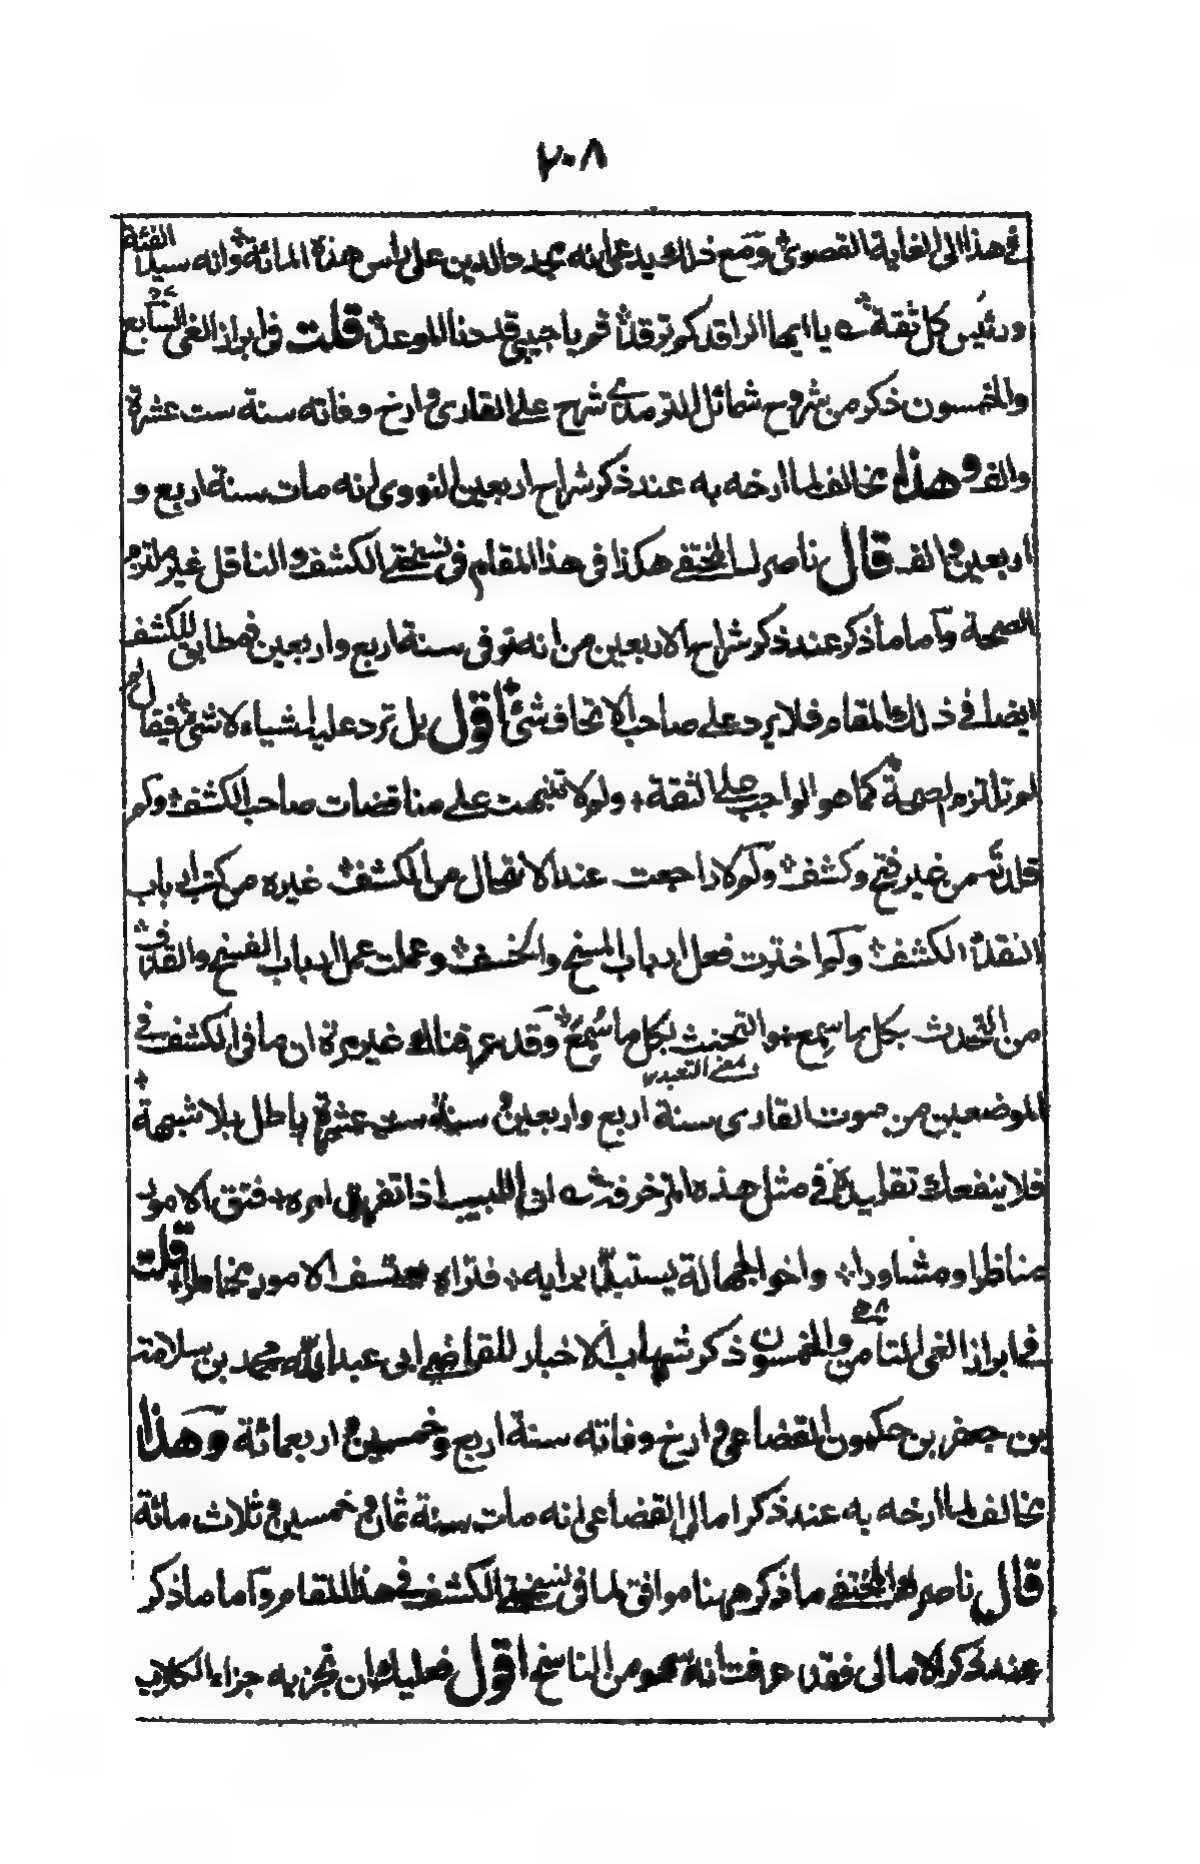 ٢٠٨
في هذا الى الغاية القصوى ومع ذلك يدعى انه مجدد الدين على راس هذه المائة وانه سيد الفئة
ورئيس كل ثقة يا ايها الراقد كم ترقد قم يا حبيبي قد دنا الموعد قلت في ابراز الغي السابع
والخمسون ذكر من شروح شمائل الترمذي شرح على القاري وارخ وفاته سنة ست عشرة
والف وهذا مخالف لما ارخه به عند ذكر شراح اربعين النووي انه مات سنة اربع و
اربعين والف قال ناصرك المختفي هكذا في هذا المقام في نسخة الكشف والناقل غير ملتزم
الصحة واما ما ذكر عند ذكر شراح الاربعين من انه توفي سنة اربع واربعين فمطابق للكشف
ايضا في ذلك المقام فلا يرد على صاحب الاتحاف شئ اقول بل ترد عليه اشياء لا شئ فيقال لم
لم تلتزم الصحة كما هو الواجب على الثقة ولم لا تنبهت على مناقضات صاحب الكشف ولم
قلدته من غير فتح وكشف ولم لا راجعت عند الانتحال من الكشف غيره من كتب ارباب
النقد الكشف ولم اخترت فعل ارباب المسخ والخسف وعملت عمل ارباب الفسخ والقذف
من التحدث بكل ما سمع والتحنث بكل ما سمع وقد عرفناك غير مرة ان ما في الكشف في
بمعنى التعبد
الموضعين من موت القاري سنة اربع واربعين وسنة ست عشرة باطل بلا شبهة
فلا ينفعك تقليده في مثل هذه المزخرفة ان اللبيب اذا تفرق امره فتق الامور
مناظرا ومشاورا واخو الجهالة يستبد برايه فتراه يعتسف الامور مخاطرا قلت
في ابراز الغي الثامن والخمسون ذكر شهاب الاخبار للقاضي ابي عبد الله محمد بن سلامة
بن جعفر بن حكمون القضاعي وارخ وفاته سنة اربع وخمسين واربعمائة وهذا
مخالف لما ارخه به عند ذكر امالي القضاعي انه مات سنة ثمان وخمسين وثلاث مائة
قال ناصرك المختفي ما ذكر ههنا موافق لما في نسخة الكشف في هذا المقام واما ما ذكر
عند ذكر الامالي فقد عرفت انه سهو من الناسخ اقول فعليك ان تجزيه جزاء الكلاب